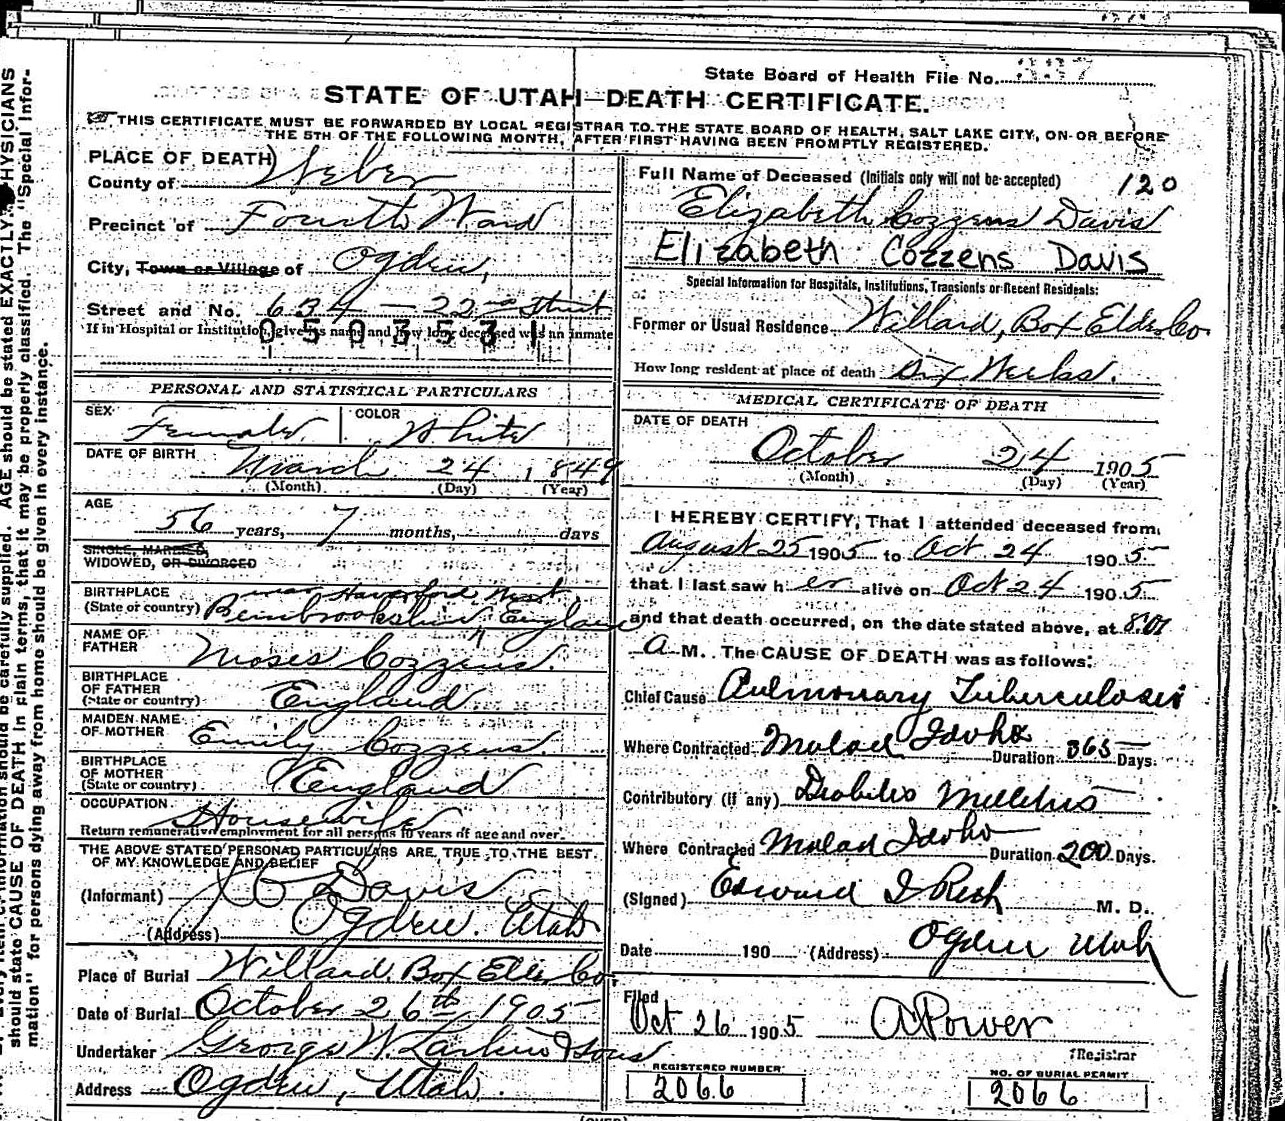 State Board of Health File No. 337
STATE OF UTAH—DEATH CERTIFICATE.
THIS CERTIFICATE MUST BE FORWARDED BY LOCAL REGISTRAR TO THE STATE BOARD OF HEALTH, SALT LAKE CITY, ON OR BEFORE
THE 5TH OF THE FOLLOWING MONTH, AFTER FIRST HAVING BEEN PROMPTLY REGISTERED.
PLACE OF DEATH
County of Weber
Precinct of Fourth Ward
City, Town or Village of Ogden,
Street and No. 634 — 22nd Street
If in Hospital or Institution, give its name and how long deceased was an inmate
0503531
PERSONAL AND STATISTICAL PARTICULARS
SEX Female COLOR White
DATE OF BIRTH March 24 1849
(Month) (Day) (Year)
AGE
56 years, 7 months, days
SINGLE, MARRIED,
WIDOWED, OR DIVORCED
BIRTHPLACE near Haverford West,
(State or country) Pembrookshire England
NAME OF
FATHER Moses Cozzens.
BIRTHPLACE
OF FATHER England
(State or country)
MAIDEN NAME
OF MOTHER Emily Cozzens
BIRTHPLACE
OF MOTHER England
(State or country)
OCCUPATION Housewife
Return remunerative employment for all persons 10 years of age and over.
THE ABOVE STATED PERSONAL PARTICULARS ARE TRUE TO THE BEST
OF MY KNOWLEDGE AND BELIEF
(Informant) Davis
(Address) Ogden, Utah
Place of Burial Willard, Box Elder Co.
Date of Burial October 26th, 1905
Undertaker George W. Larkin & Sons
Address Ogden, Utah.
Full Name of Deceased (Initials only will not be accepted) 120
Elizabeth Cozzens Davis
Elizabeth Cozzens Davis
Special Information for Hospitals, Institutions, Transients or Recent Residents:
Former or Usual Residence Willard, Box Elder Co.
How long resident at place of death Six Weeks.
MEDICAL CERTIFICATE OF DEATH
DATE OF DEATH
October 24 1905
(Month) (Day) (Year)
I HEREBY CERTIFY, That I attended deceased from
August 25 1905 to Oct 24 1905
that I last saw her alive on Oct 24 1905
and that death occurred, on the date stated above, at 8:01
A M. The CAUSE OF DEATH was as follows:
Chief Cause Pulmonary Tuberculosis
Where Contracted Malad Idaho Duration 365 Days.
Contributory (if any) Diabetes Mellitus
Where Contracted Malad Idaho Duration 200 Days.
(Signed) Edward I Rich M. D.
Date 190 (Address) Ogden Utah
Filed
Oct 26 1905 A Power
Registrar
REGISTERED NUMBER
2066
NO. OF BURIAL PERMIT
2066
AGE should be stated EXACTLY. PHYSICIANS
should state CAUSE OF DEATH in plain terms, that it may be properly classified. The "Special Infor-
mation" for persons dying away from home should be given in every instance.